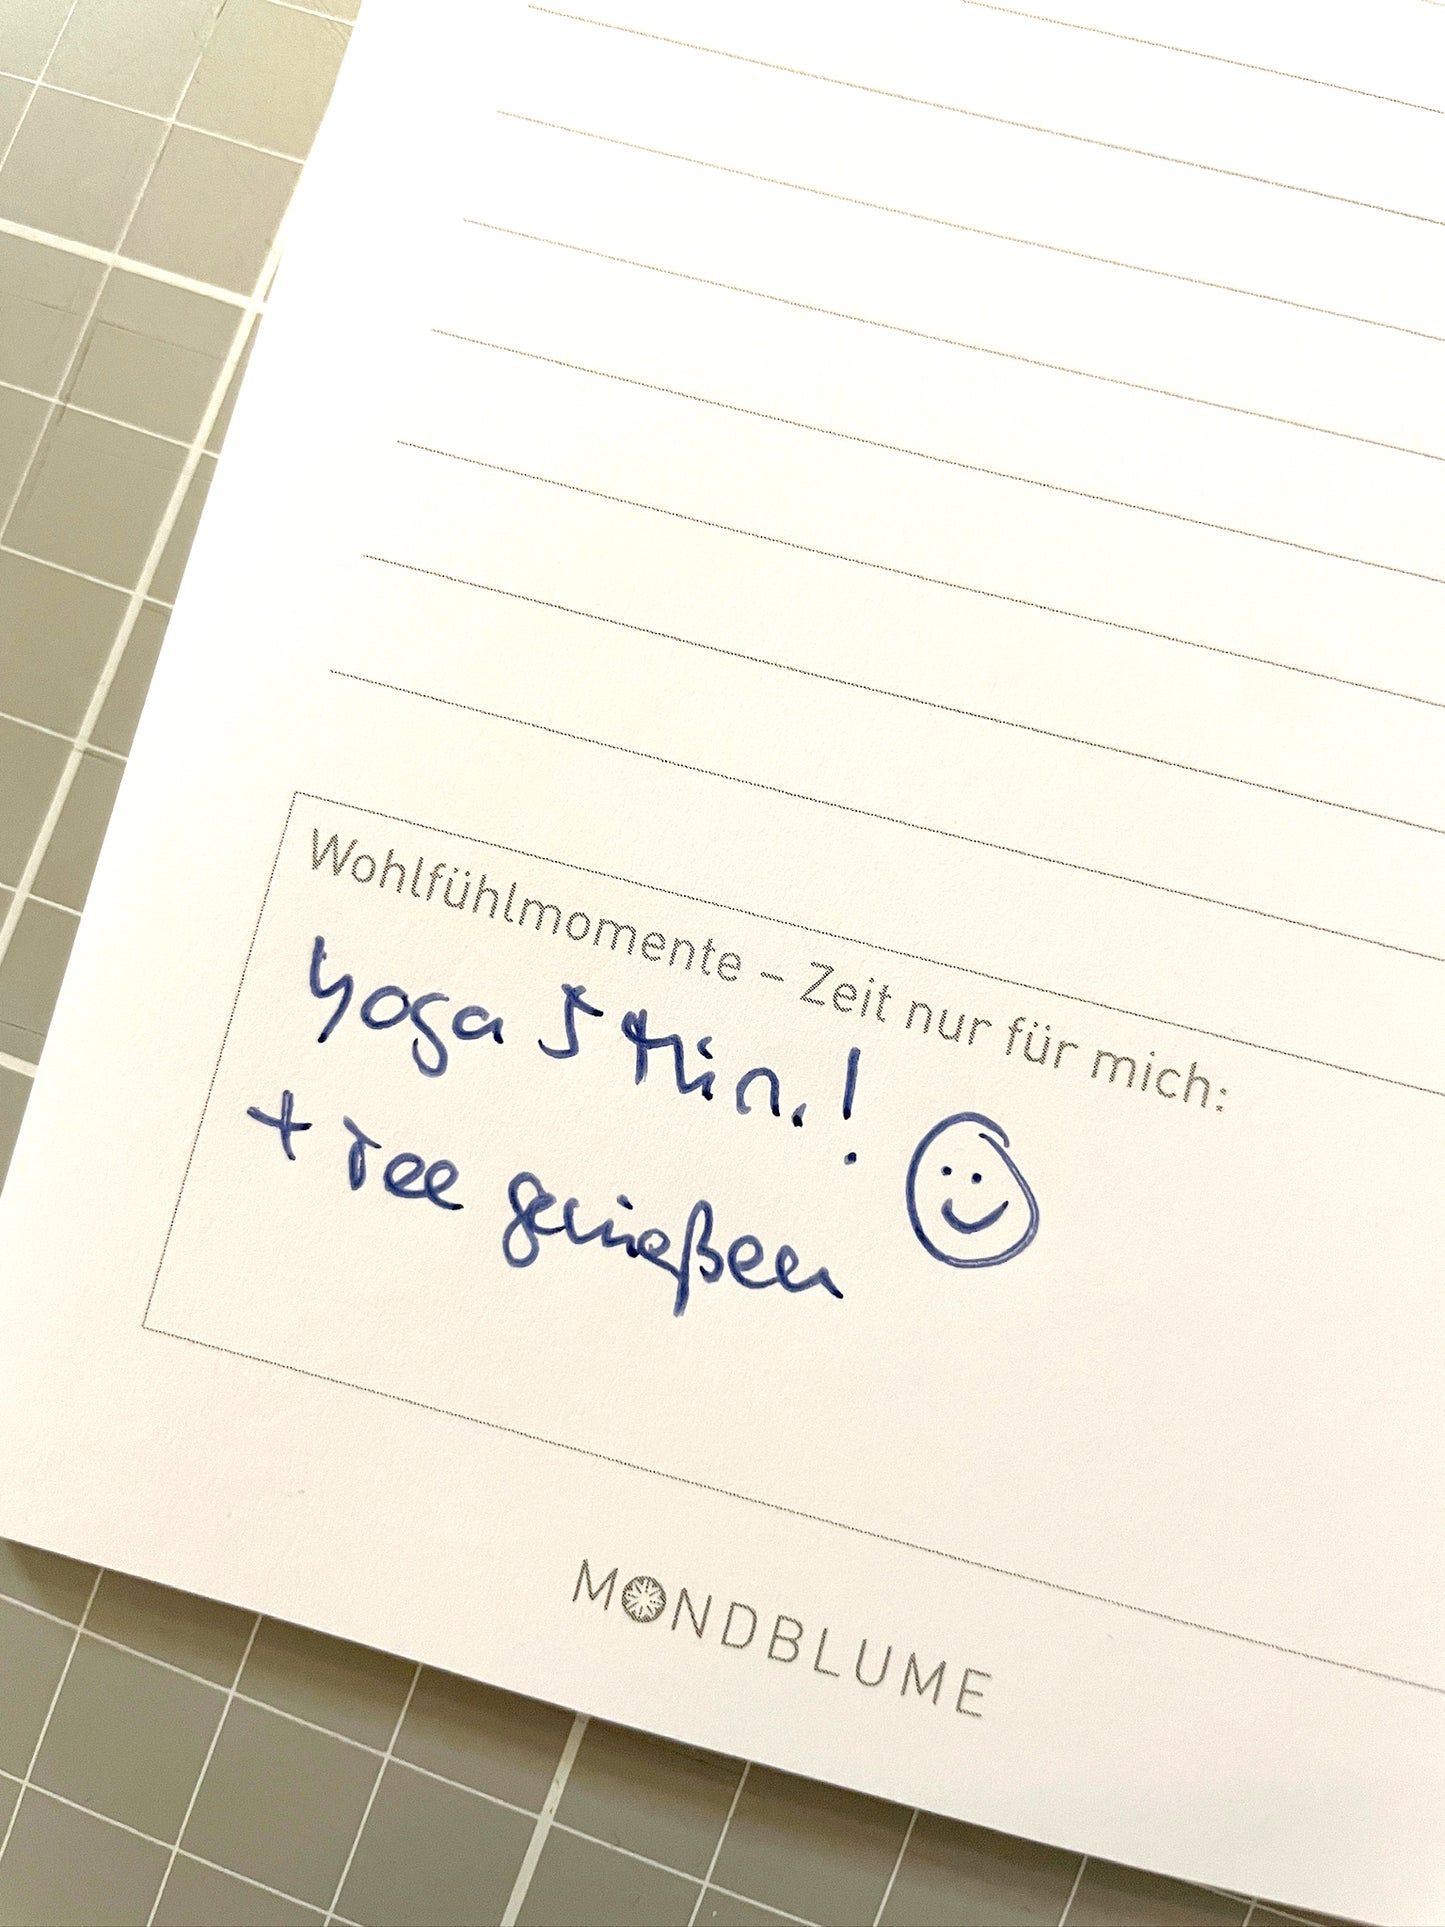 Wohlfühlmomente – Zeit nur für mich:
Yoga 5 Min.!
+ Tee genießen
MONDBLUME